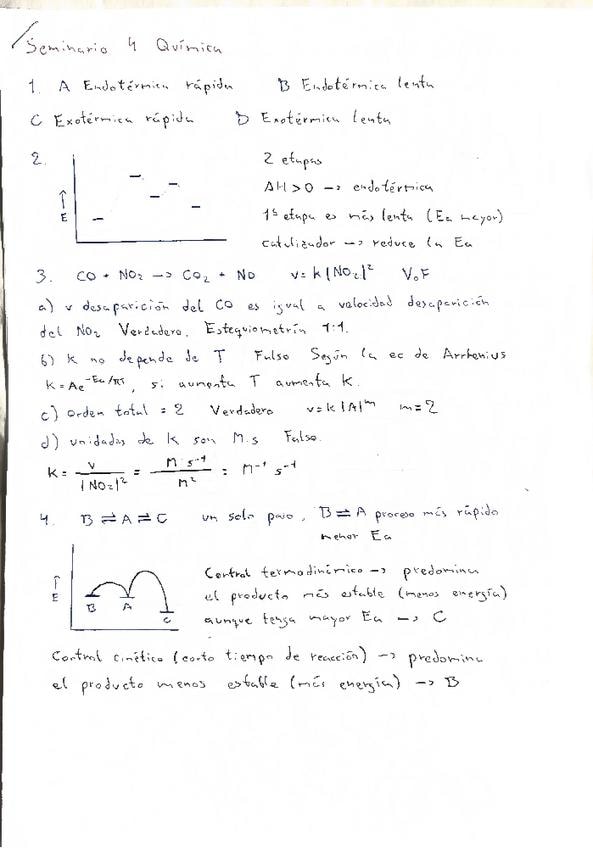 Seminario 4 Química
1. A Endotérmica rápida B Endotérmica lenta
C Exotérmica rápida D Exotérmica lenta
2. 2 etapas
↑ E ΔH > 0 → endotérmica
1ª etapa es más lenta (Ea mayor)
catalizador → reduce la Ea
3. CO + NO2 → CO2 + NO v = k [NO2]² V o F
a) v desaparición del CO es igual a velocidad desaparición
del NO2 Verdadero. Estequiometría 1:1.
b) k no depende de T Falso Según la ec de Arrhenius
K = Ae^-Ea/RT, si aumenta T aumenta K.
c) Orden total = 2 Verdadero v = k [A]^m m = 2
d) unidades de K son M.s Falso.
K = v / [NO2]² = M s⁻¹ / M² = M⁻¹ s⁻¹
4. B ⇌ A ⇌ C un solo paso, B ⇌ A proceso más rápido
menor Ea
↑ E B A C
Control termodinámico → predomina
el producto más estable (menos energía)
aunque tenga mayor Ea → C
Control cinético (corto tiempo de reacción) → predomina
el producto menos estable (más energía) → B